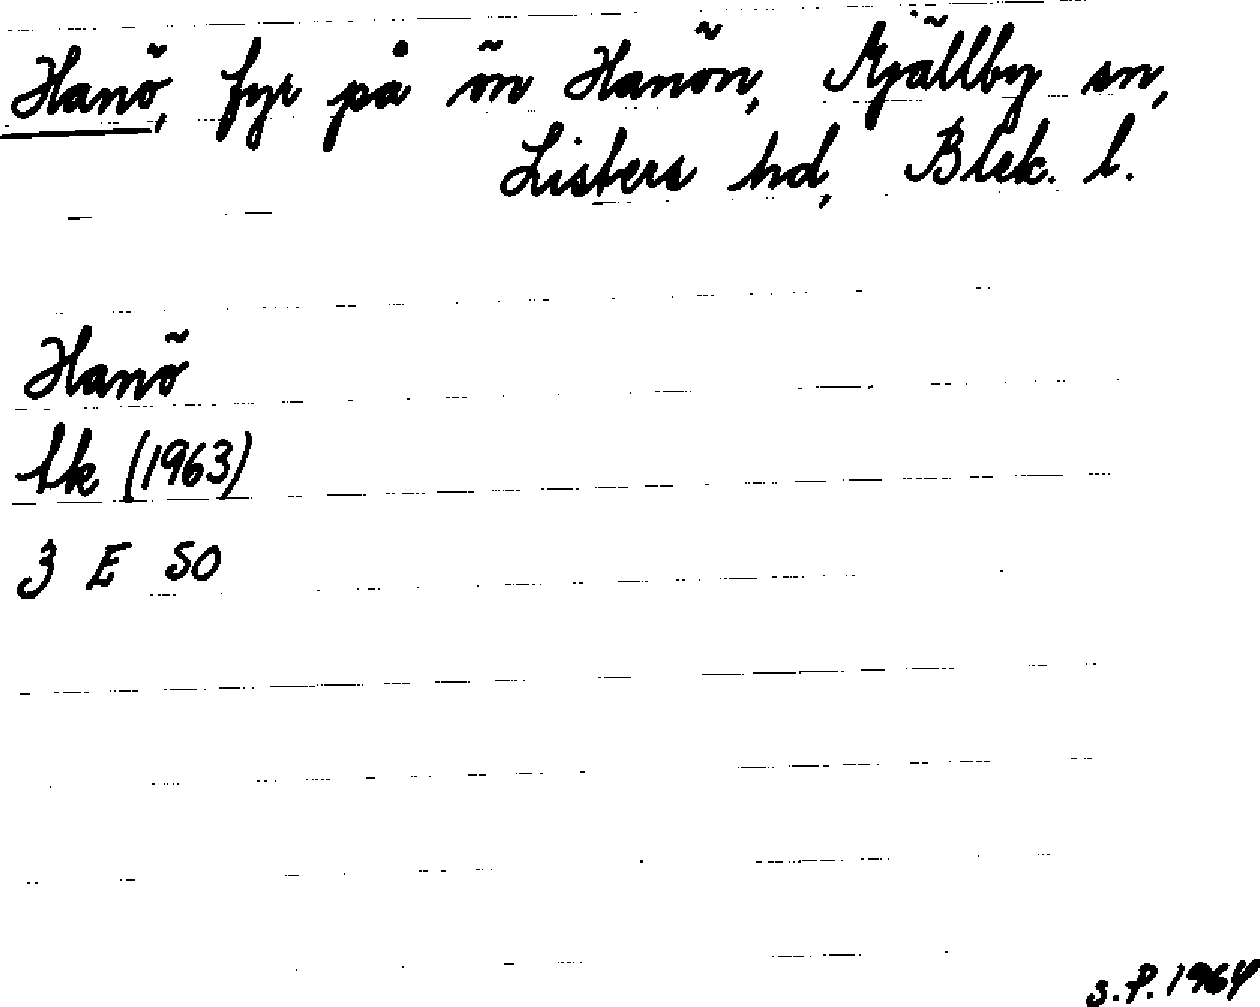 Hanö, fyr på ön Hanön, Mjällby sn,
Listers hd, Blek. l.
Hanö
tk (1963)
3 E SO
s.P. 1964